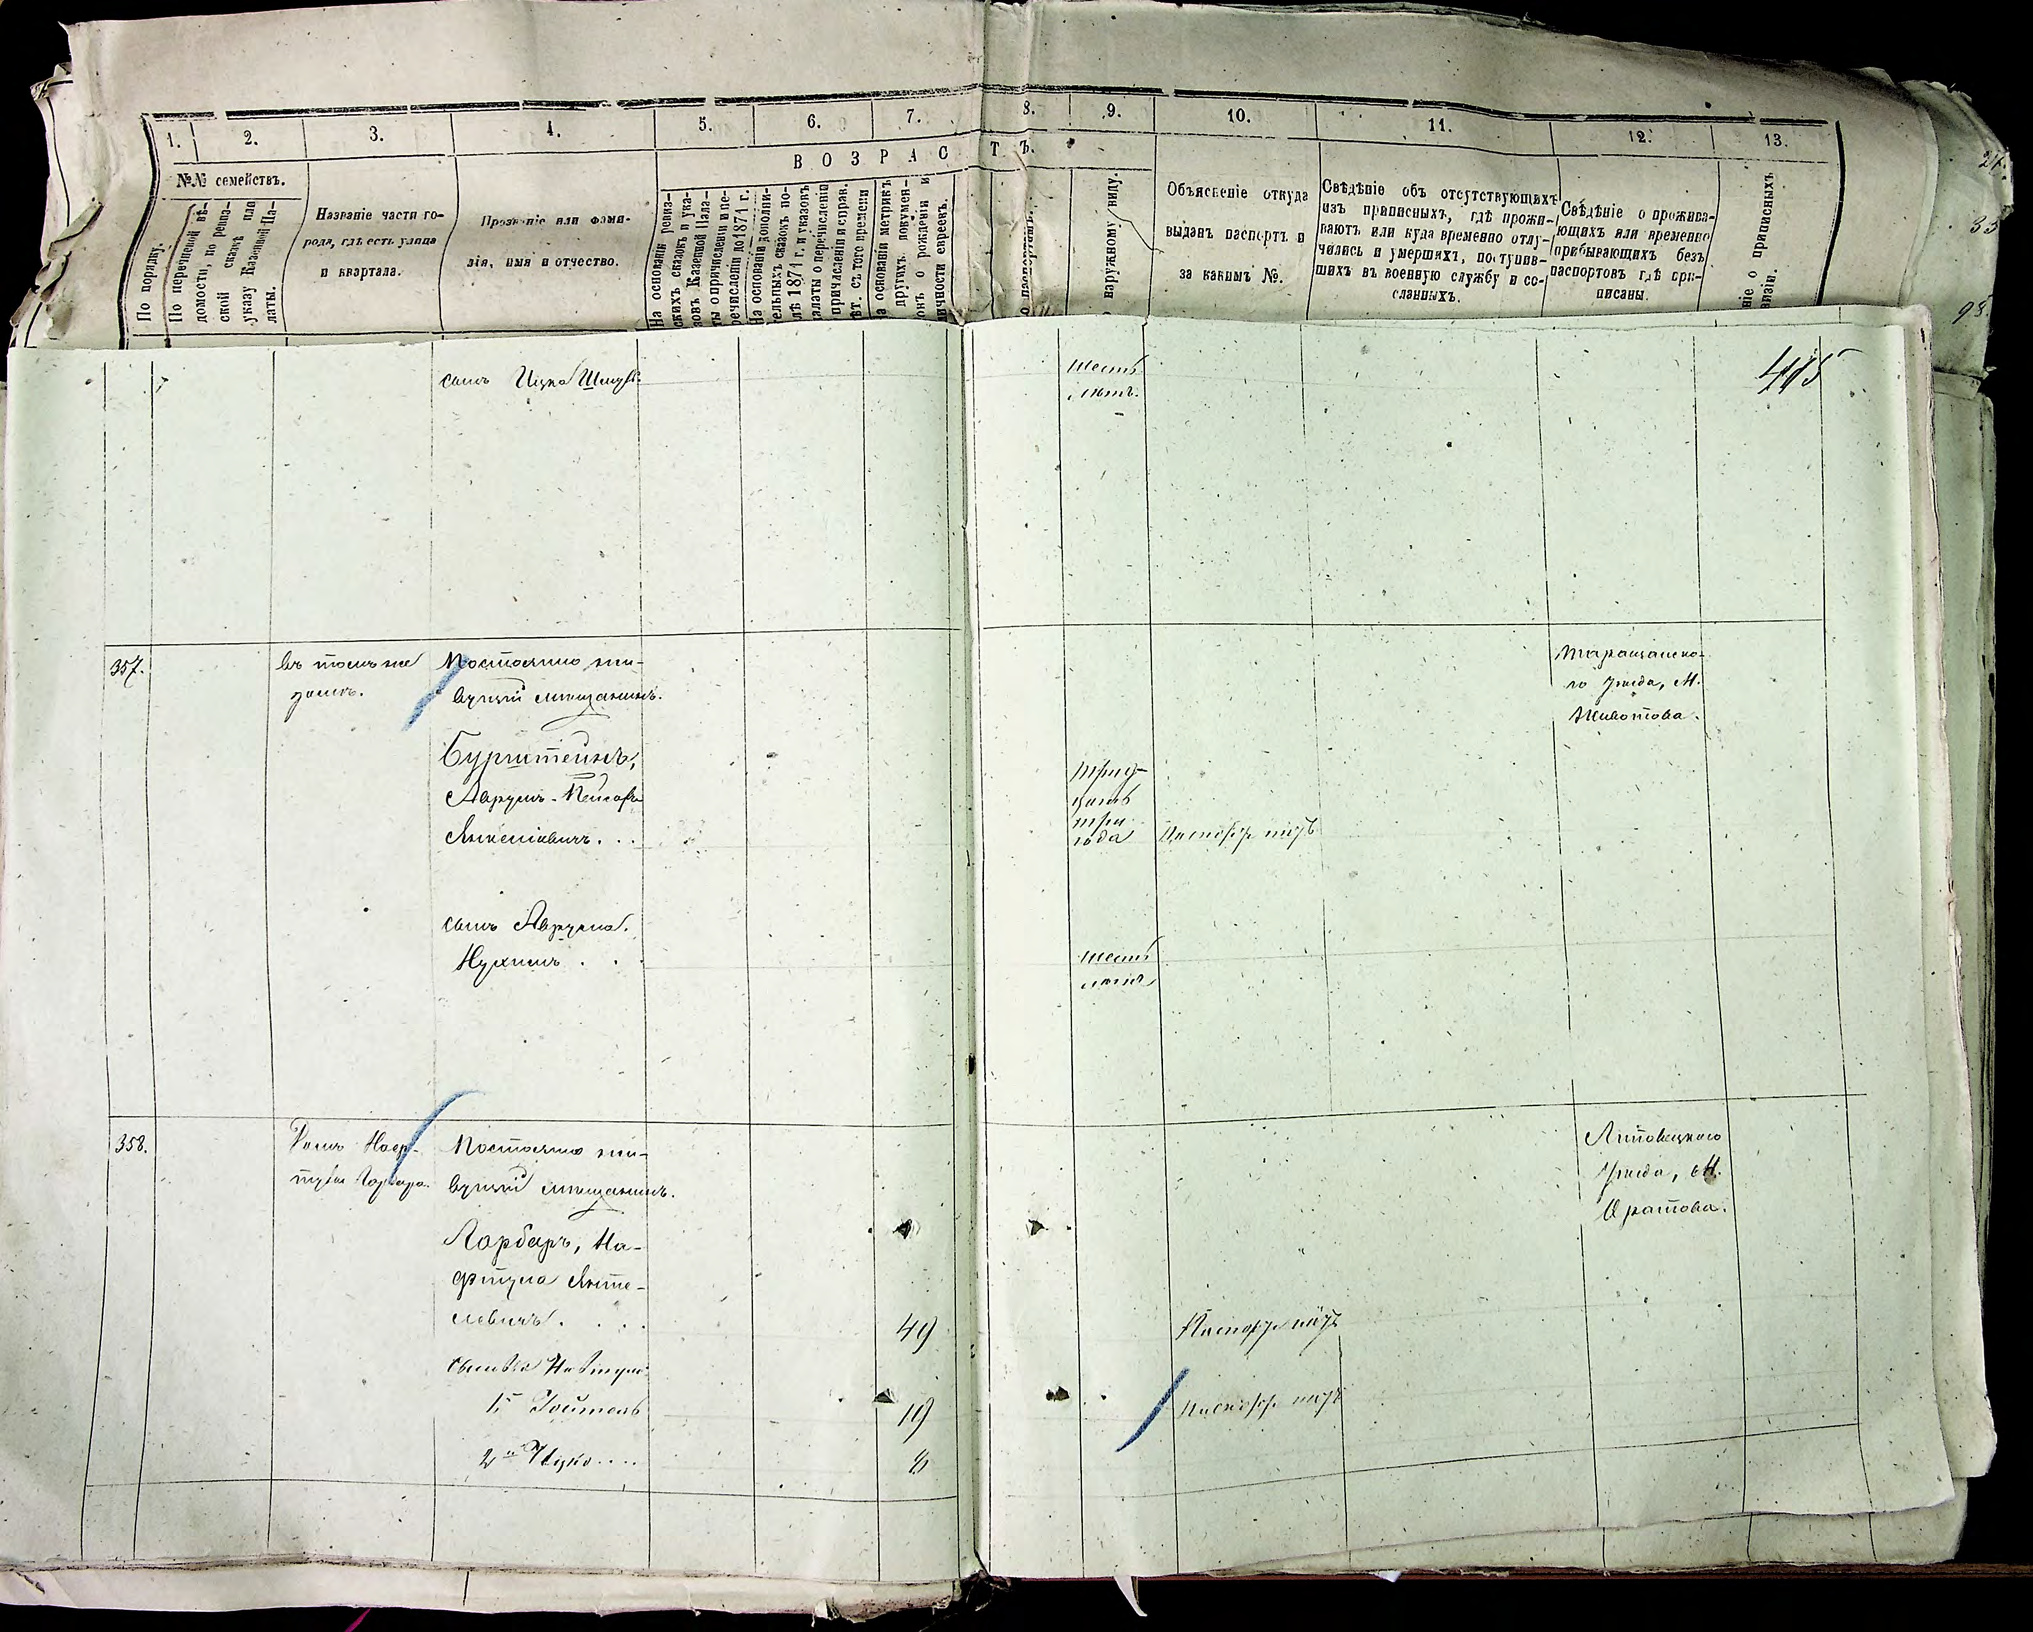 1.
2.
3.
4.
5.
6.
7.
8.
9.
10.
11.
12.
13.
ВОЗРАСТЪ.
№№ семействъ.
По порядку.
По перечневой вѣ-
домости, по ревиз-
ской сказкѣ или
указу Казенной Па-
латы.
Названіе части го-
рода, гдѣ есть улица
и квартала.
Прозваніе или фами-
лія, имя и отчество.
На основаніи ревиз-
скихъ сказокъ и ука-
зовъ Казенной Пала-
ты о причисленіи и пе-
речисленіи до 1874 г.
На основаніи дополни-
тельныхъ сказокъ по-
слѣ 1874 г. и указовъ
палаты о перечисленіи
причисленіи и справ.
лѣт. съ того времени
На основаніи метрикъ
другихъ докумен-
о рожденіи и
личности евреевъ.
наружному виду.
Объясненіе откуда
выданъ паспортъ и
за какимъ №.
Свѣдѣніе объ отсутствующихъ
изъ приписныхъ, гдѣ прожи-
ваютъ или куда временно отлу-
чились и умершихъ, поступив-
шихъ въ военную службу и со-
сланныхъ.
Свѣдѣніе о прожива-
ющихъ или временно
прибывающихъ безъ
паспортовъ гдѣ при-
писаны.
ніе о приписныхъ
визіи.
415
сынъ Ицко Шмуль
шесть
лѣтъ.
357.
въ томъ же
домѣ.
Постоянно жи-
вущій мѣщанинъ.
Бурштейнъ,
Аврумъ-
Янкелевичъ. . .
трид-
цать
три
года
Паспорт
Таращанска-
го уѣзда, М.
Животова.
сынъ Аврума.
Нухимъ . . .
шесть
лѣтъ
358.
Домъ Наф-
тулы
Постоянно жи-
вущій мѣщанинъ.
На-
фтула
левичъ. . . .
49
Паспорт
Липовецкаго
уѣзда, М.
Оратова.
сыновья Нафтулы
1й
19
Паспорт
2й Ицко . . . .
8